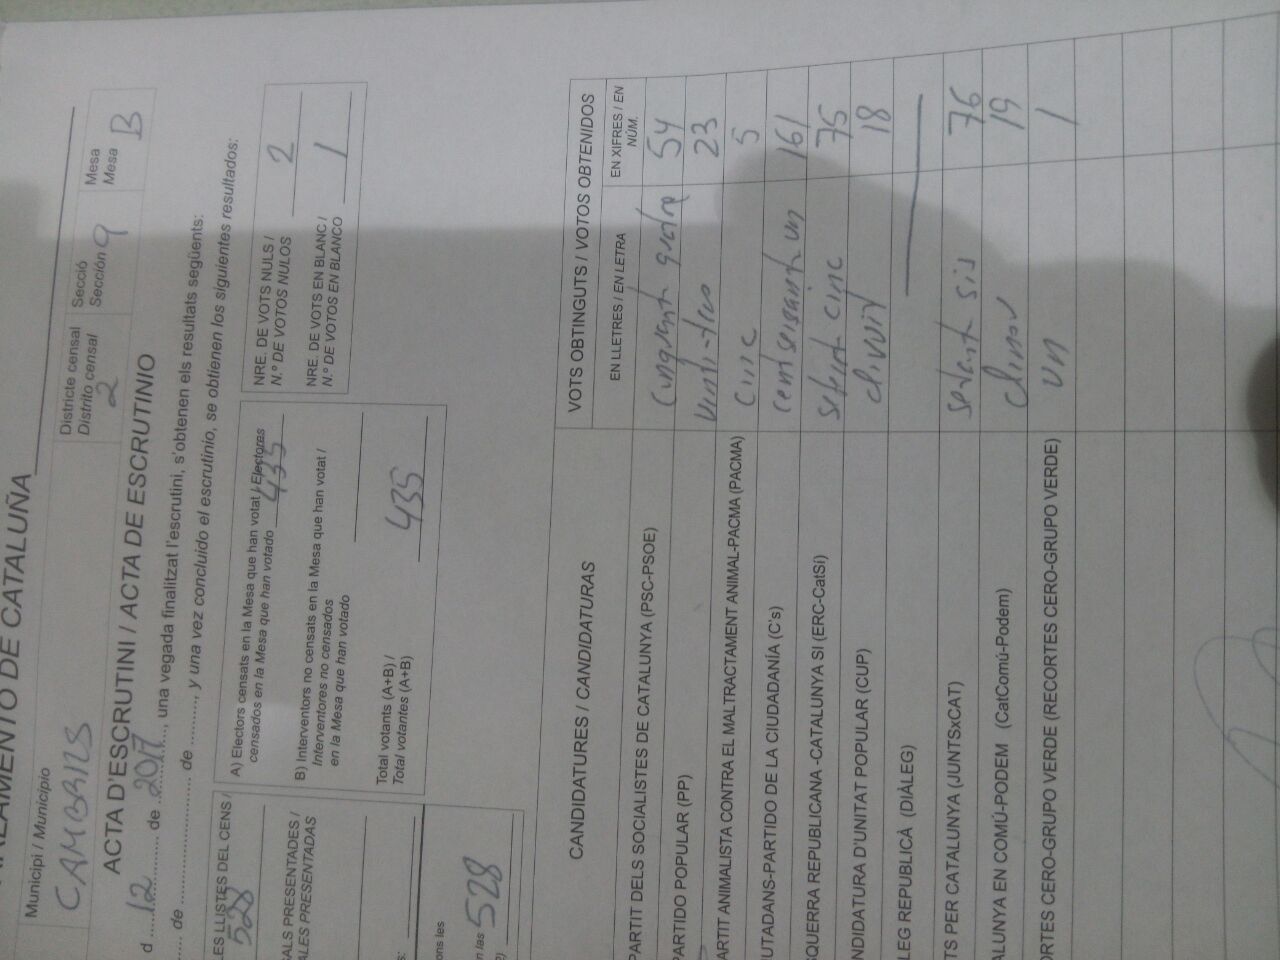 PARLAMENTO DE CATALUÑA
Municipi / Municipio
CAMBRILS
Districte censal
Distrito censal
2
Secció
Sección 9
Mesa
Mesa
B
ACTA D'ESCRUTINI / ACTA DE ESCRUTINIO
d ....12.... de ..2017.., una vegada finalitzat l'escrutini, s'obtenen els resultats següents:
de ............ de ........, y una vez concluido el escrutinio, se obtienen los siguientes resultados:
LES LLISTES DEL CENS /
528
PRESENTADES /
PRESENTADAS
528
A) Electors censats en la Mesa que han votat / Electores
censados en la Mesa que han votado 435
B) Interventors no censats en la Mesa que han votat /
Interventores no censados
en la Mesa que han votado
Total votants (A+B) /
Total votantes (A+B) 435
NRE. DE VOTS NULS /
N.º DE VOTOS NULOS 2
NRE. DE VOTS EN BLANC /
N.º DE VOTOS EN BLANCO 1
CANDIDATURES / CANDIDATURAS
VOTS OBTINGUTS / VOTOS OBTENIDOS
EN LLETRES / EN LETRA
EN XIFRES / EN
NÚM.
PARTIT DELS SOCIALISTES DE CATALUNYA (PSC-PSOE) cinquanta quatre 54
PARTIDO POPULAR (PP) vint-i-tres 23
PARTIT ANIMALISTA CONTRA EL MALTRACTAMENT ANIMAL-PACMA (PACMA) cinc 5
CIUTADANS-PARTIDO DE LA CIUDADANÍA (C's) cent seixanta un 161
ESQUERRA REPUBLICANA -CATALUNYA SI (ERC-CatSí) setanta cinc 75
CANDIDATURA D'UNITAT POPULAR (CUP) divuit 18
DIÀLEG REPUBLICÀ (DIÀLEG)
JUNTS PER CATALUNYA (JUNTSxCAT) setanta sis 76
CATALUNYA EN COMÚ-PODEM (CatComú-Podem) dinou 19
RECORTES CERO-GRUPO VERDE (RECORTES CERO-GRUPO VERDE) un 1